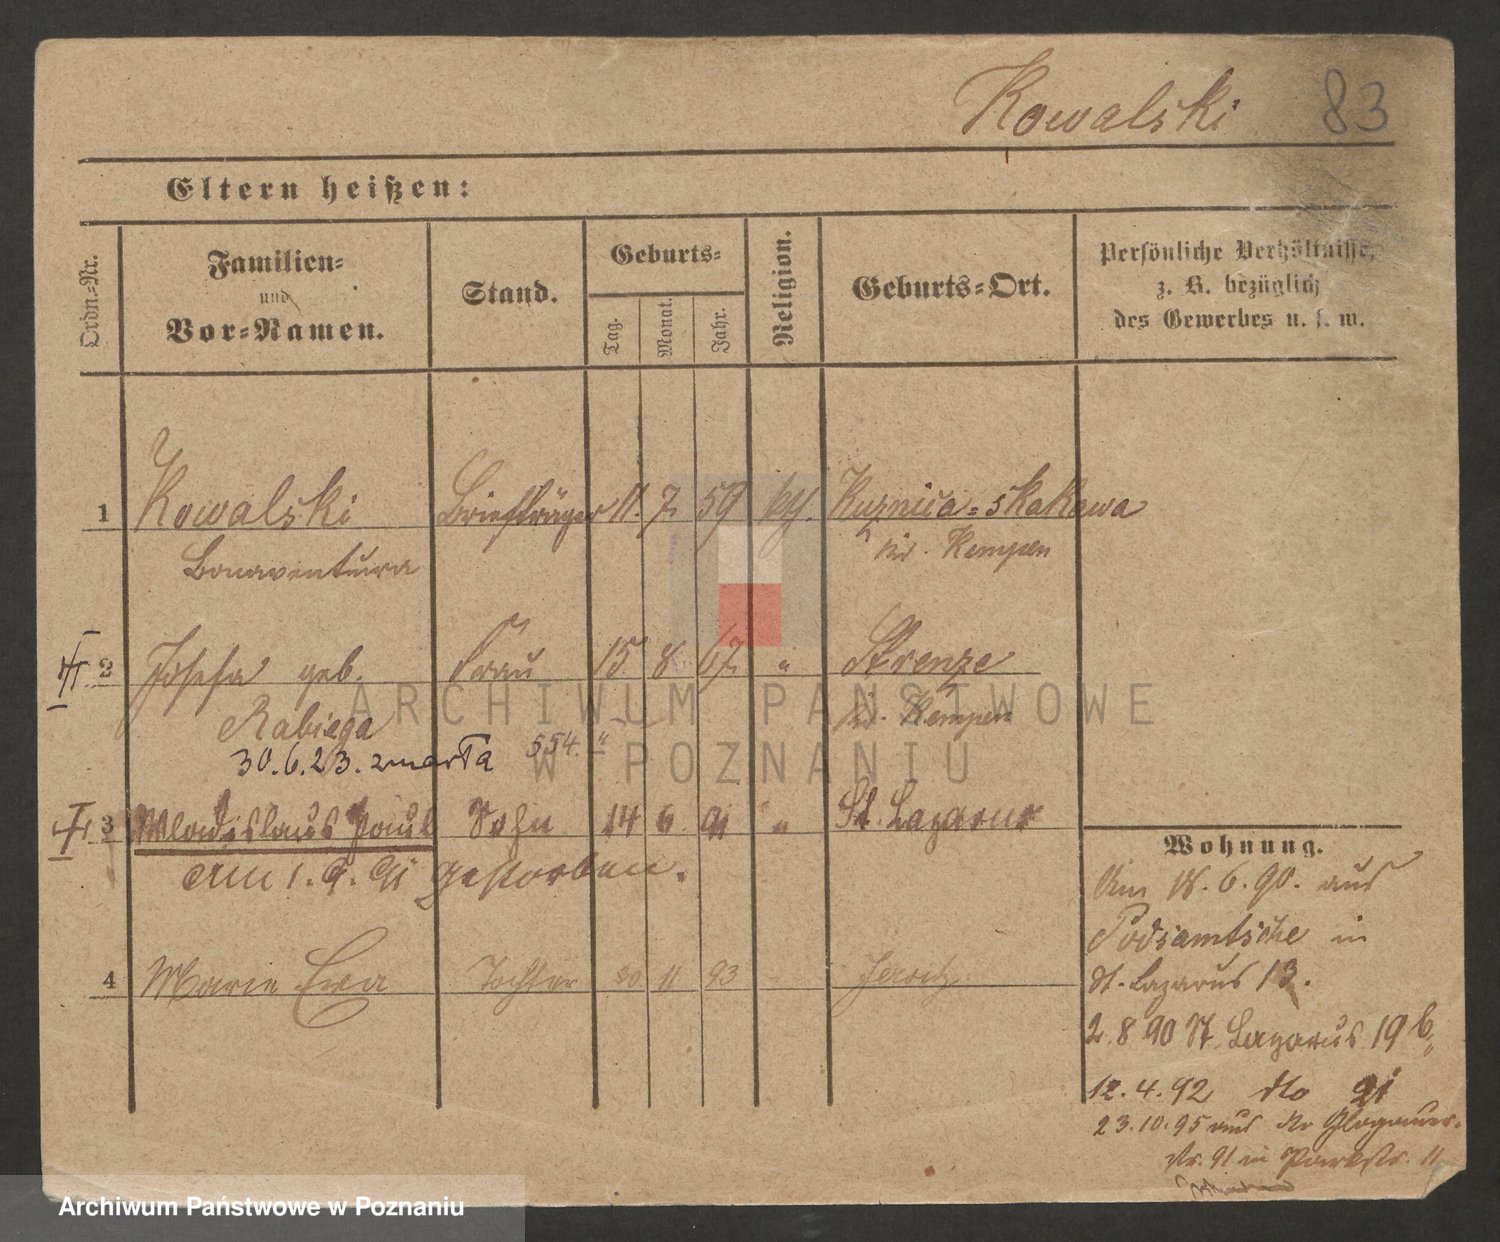 Kowalski 83
Eltern heißen:
Ordn.-Nr.
Familien-
und
Vor-Namen.
Stand.
Geburts-
Tag.
Monat.
Jahr.
Religion.
Geburts-Ort.
Persönliche Verhältnisse,
z. B. bezüglich
des Gewerbes u. s. w.
1 Kowalski Briefträger 11. 7. 59 kth. Kuznica-skakawa
Bonaventura Kr. Kempen
2 Josefa geb. Frau 15 8. 67. " Strenze
Rabiega Kr. Kempen
30.6.23. zmarła 554.
3 Wladislaus Paul Sohn 14 6. 91 " St. Lazarus
am 1. 9. 91 gestorben.
4 Marie Eva Tochter 20 11 93 Jersitz
Wohnung.
Am 18. 6. 90. aus
Podsamtsche in
St. Lazarus 13.
2. 8 90 St. Lazarus 19 b,
12. 4. 92 dto 91
23. 10. 95 aus Glogauer-
str. 91 in Parkstr. 11
ARCHIWUM PAŃSTWOWE
W POZNANIU
Archiwum Państwowe w Poznaniu